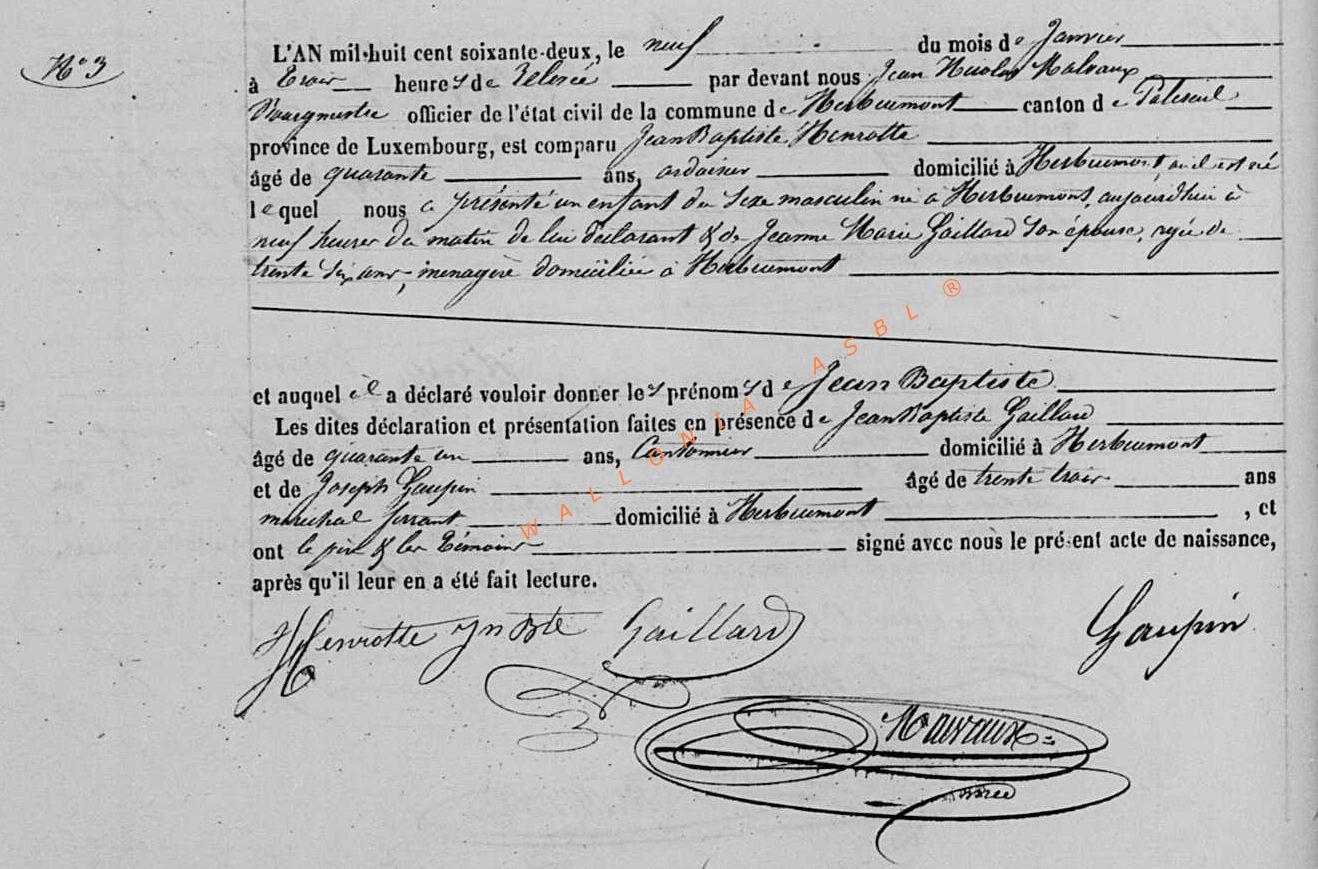 N° 3
L'AN mil-huit cent soixante-deux, le neuf du mois de Janvier
à trois heures de relevée par devant nous Jean Nicolas Malvaux
Bourgmestre officier de l'état civil de la commune de Herbeumont canton de Paliseul
province de Luxembourg, est comparu Jean Baptiste Henrotte
âgé de quarante ans, ardoisier domicilié à Herbeumont, où il est né
lequel nous a présenté un enfant du sexe masculin né à Herbeumont, aujourdhui à
neuf heures du matin de lui déclarant & de Jeanne Marie Gaillard son épouse, agée de
trente six ans, menagère domiciliée à Herbeumont
et auquel il a déclaré vouloir donner les prénoms de Jean Baptiste
Les dites déclaration et présentation faites en présence de Jean Baptiste Gaillard
âgé de quarante un ans, Cantonnier domicilié à Herbeumont
et de Joseph Gaupin âgé de trente trois ans
maréchal ferrant domicilié à Herbeumont, et
ont le père & les témoins signé avec nous le présent acte de naissance,
après qu'il leur en a été fait lecture.
Henrotte Jn Bte Gaillard Gaupin
Malvaux
WALLONIA ASBL ®